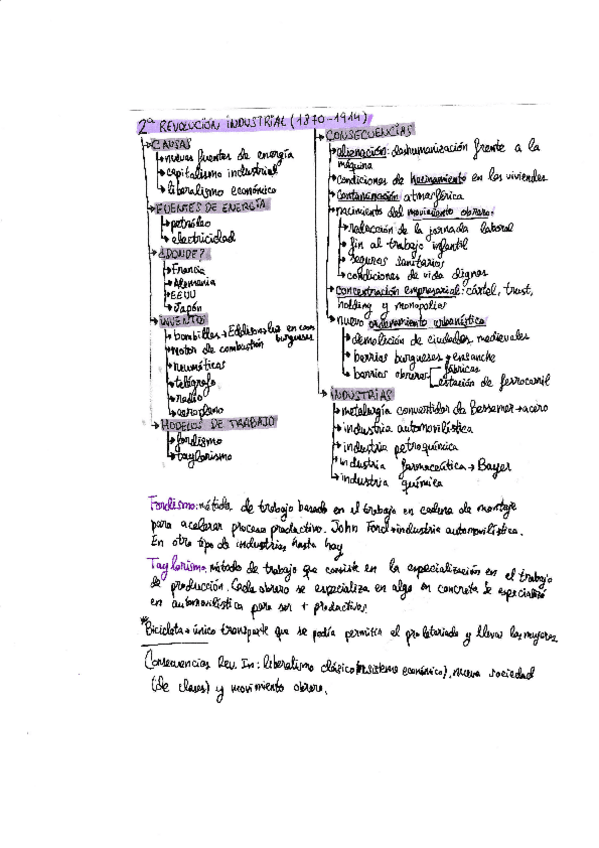 2ª REVOLUCIÓN INDUSTRIAL (1870-1914)
CAUSAS
nuevas fuentes de energía
capitalismo industrial
liberalismo económico
FUENTES DE ENERGÍA
petróleo
electricidad
¿DONDE?
Francia
Alemania
EEUU
Japón
INVENTOS
bombillas → luz en casas
burguesas
motor de combustión
neumáticos
telégrafo
radio
aeroplano
MODELOS DE TRABAJO
fordismo
taylorismo
CONSECUENCIAS
alienación: deshumanización frente a la
máquina
condiciones de hacinamiento en las viviendas
contaminación atmosférica
nacimiento del movimiento obrero:
reducción de la jornada laboral
fin al trabajo infantil
seguros sanitarios
condiciones de vida dignas
concentración empresarial: cártel, trust,
holding y monopolios
nuevo ordenamiento urbanístico
demolición de ciudades medievales
barrios burgueses → ensanche
barrios obreros fábricas
estación de ferrocarril
INDUSTRIAS
metalurgia convertidor de Bessemer → acero
industria automovilística
industria petroquímica
industria farmaceútica → Bayer
industria química
Fordismo: método de trabajo basado en el trabajo en cadena de montaje
para acelerar proceso productivo. John Ford → industria automovilística.
En otro tipo de industrias hasta hoy
Taylorismo: método de trabajo que consiste en la especialización en el trabajo
de producción. Cada obrero se especializa en algo en concreto. Se especializó
en automovilística para ser + productivos.
*Bicicleta → único transporte que se podía permitir el proletariado y llevar las mujeres.
Consecuencias Rev. In: liberalismo clásico (sistema económico), nueva sociedad
(de clases) y movimiento obrero.